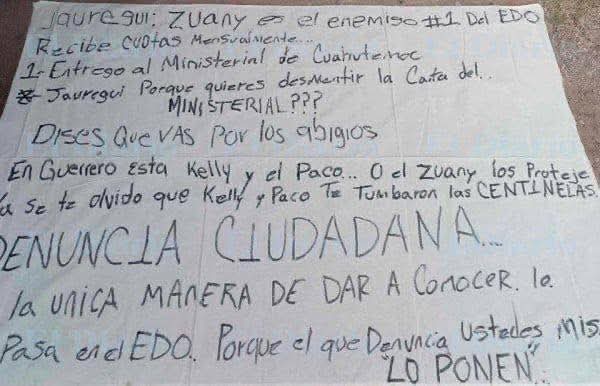 Jauregui: Zuany es el enemigo #1 Del EDO
Recibe CUOTAS Mensualmente...
1- Entrego al Ministerial de Cuahutemoc
- Jauregui Porque quieres desmentir la Carta del..
MINISTERIAL???
Dises Que VAS Por los abigios
En Guerrero Esta Kelly y el Paco... O el Zuany los Proteje
Ya se te olvido que Kelly y Paco Te Tumbaron las CENTINELAS.
DENUNCIA CIUDADANA...
la UNICA MANERA DE DAR A CONOCER. lo
Pasa en el EDO. Porque el que Denuncia Ustedes Mis
"LO PONEN".